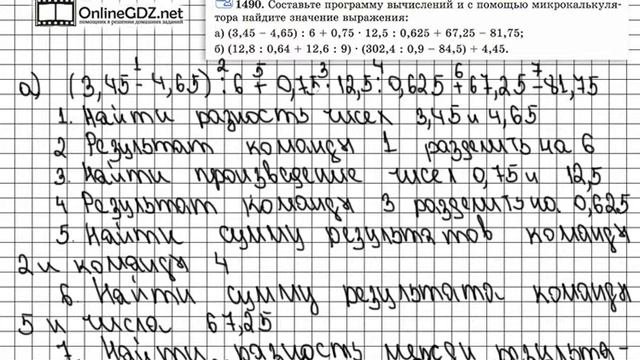 OnlineGDZ.net
помощник в решении домашних заданий
1490. Составьте программу вычислений и с помощью микрокалькуля-
тора найдите значение выражения:
а) (3,45 − 4,65) : 6 + 0,75 · 12,5 : 0,625 + 67,25 − 81,75;
б) (12,8 : 0,64 + 12,6 : 9) · (302,4 : 0,9 − 84,5) + 4,45.
1 2 5 3 4 6 7
а) (3,45 − 4,65) : 6 + 0,75 · 12,5 : 0,625 + 67,25 − 81,75
1. Найти разность чисел 3,45 и 4,65
2 Результат команды 1 разделить на 6
3. Найти произведение чисел 0,75 и 12,5
4 Результат команды 3 разделить на 0,625
5. Найти сумму результатов команды
2 и команды 4
6 Найти сумму результата команды
5 и числа 67,25
7. Найти разность между результа-